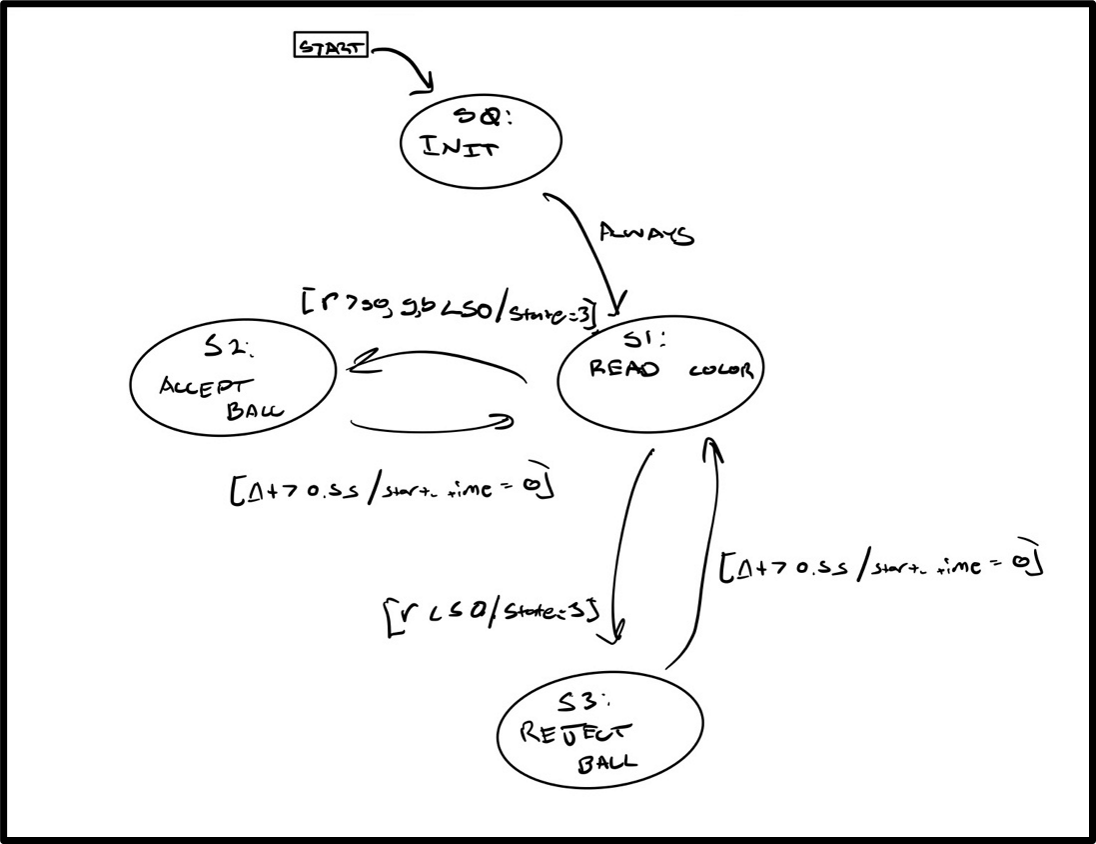 START
S0:
INIT
ALWAYS
[r>50, g,b<50/state=3]
S1:
READ COLOR
S2:
ACCEPT
BALL
[Δt>0.5s/start_time=0]
[Δt>0.5s/start_time=0]
[r<50/state=3]
S3:
REJECT
BALL